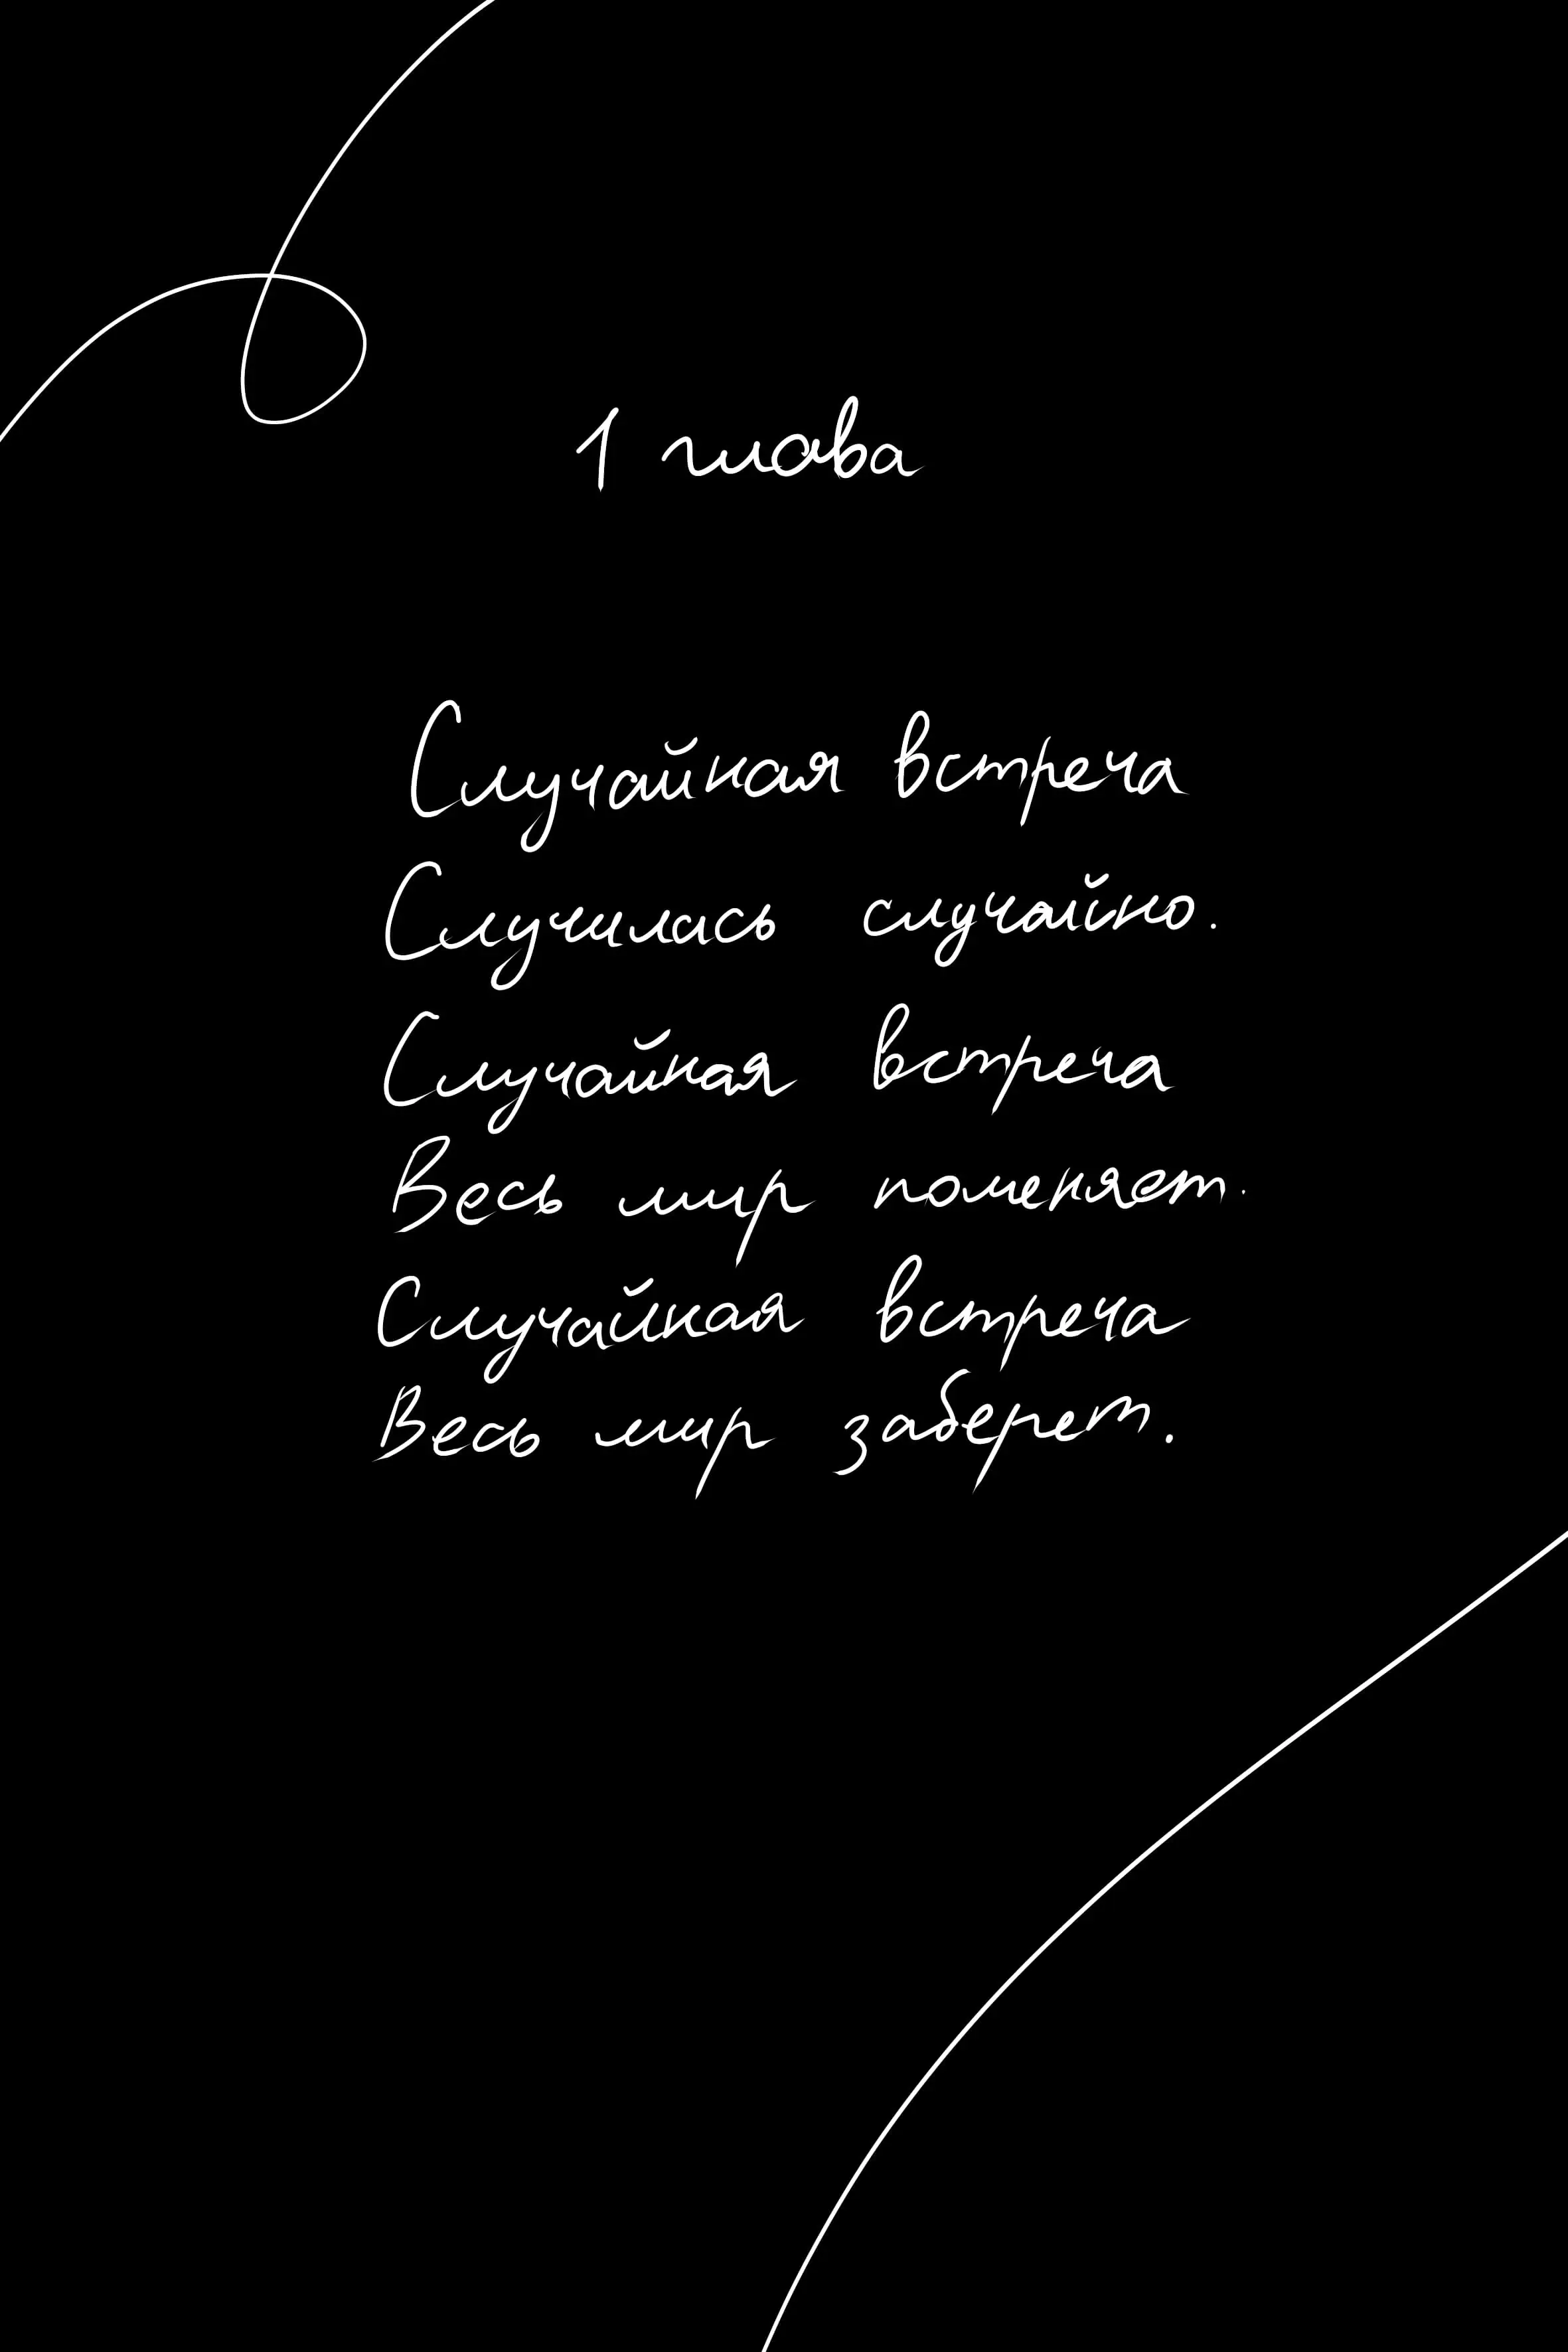 1 глава
Случайная встреча
Случилась случайно.
Случайная встреча
Весь мир поменяет.
Случайная встреча
Весь мир заберет.